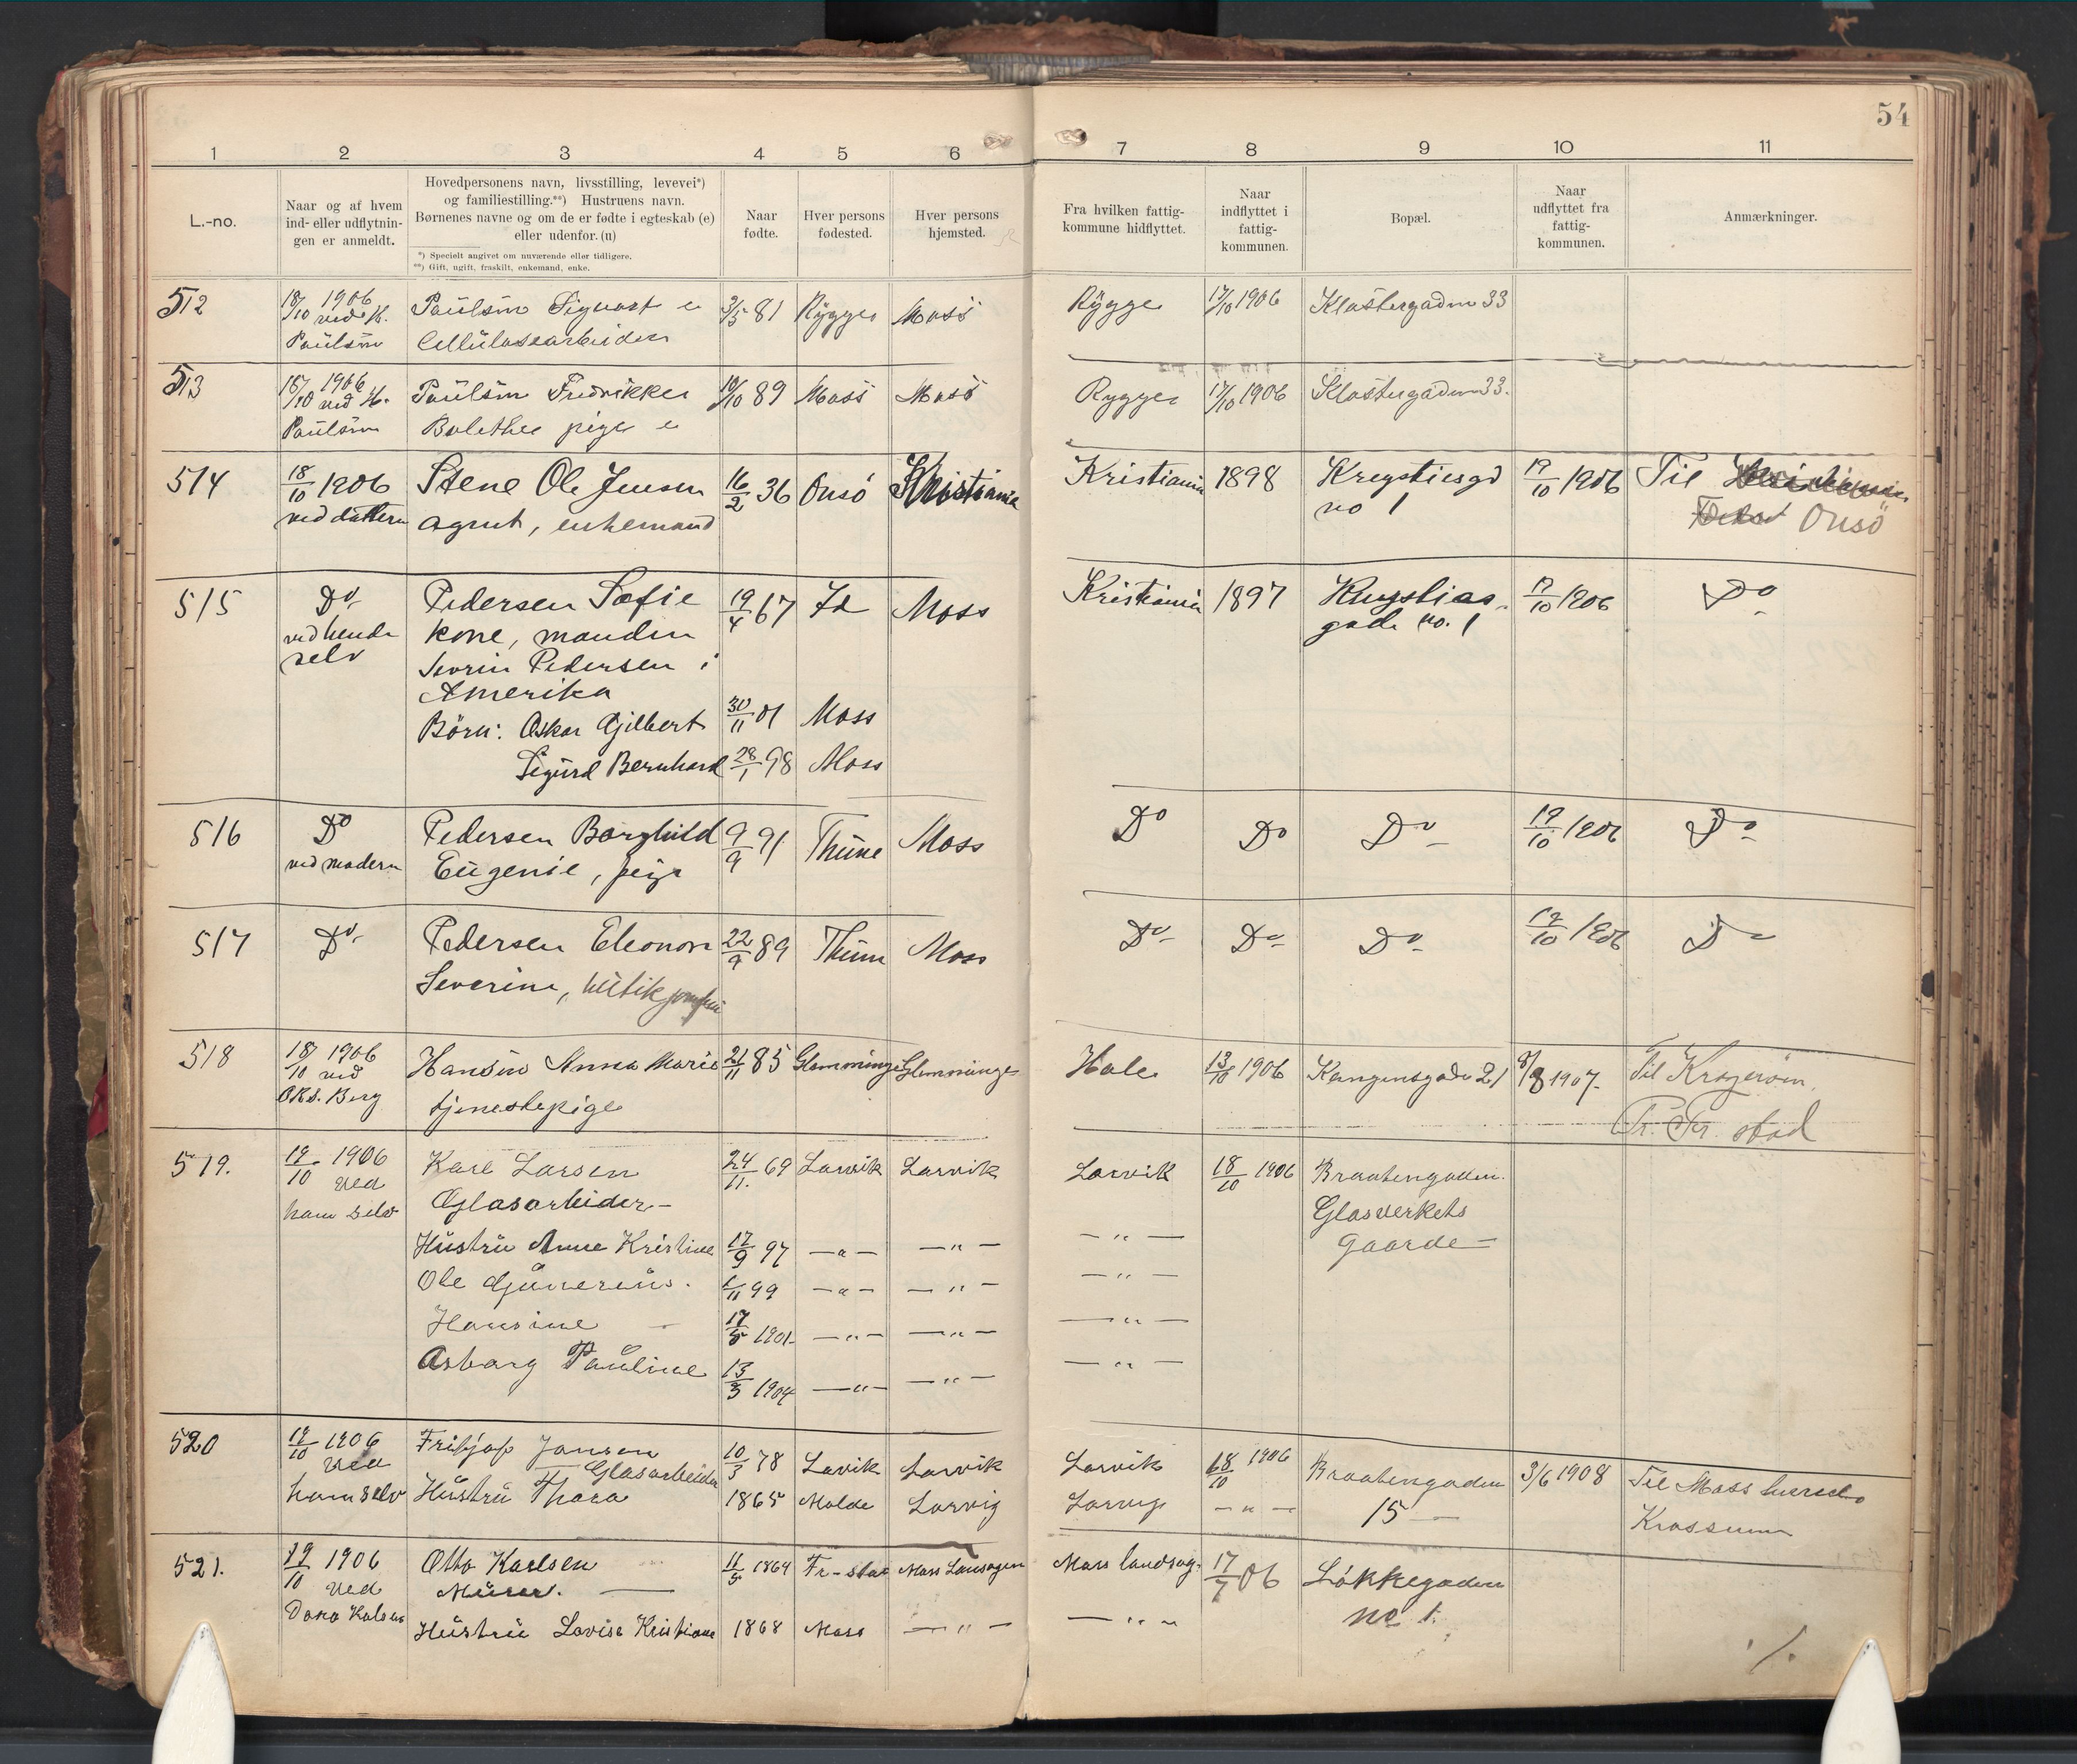 54
1 2 3 4 5 6 7 8 9 10 11
L.-no.
Naar og af hvem
ind- eller udflytnin-
gen er anmeldt.
Hovedpersonens navn, livsstilling, levevei*)
og familiestilling.**) Hustruens navn.
Børnenes navne og om de er fødte i egteskab (e)
eller udenfor. (u)
*) Specielt angivet om nuværende eller tidligere.
**) Gift, ugift, fraskilt, enkemand, enke.
Naar
fødte.
Hver persons
fødested.
Hver persons
hjemsted.
Fra hvilken fattig-
kommune hidflyttet.
Naar
indflyttet i
fattig-
kommunen.
Bopæl.
Naar
udflyttet fra
fattig-
kommunen.
Anmærkninger.
512 18/10 1906 Paulsen Sigvart e 3/5 81 Rygge Moss Rygge 17/10 1906 Klostergaden 33
ved H.
Paulsen Cellulosearbeider
513 18/10 1906 Paulsen Fredrikke 10/10 89 Moss Moss Rygge 17/10 1906 Klostergaden 33.
ved H.
Paulsen Bolethe pige e
514 18/10 1906 Stene Ole Jensen 16/2 36 Onsö Kristiania Kristiania 1898 19/10 1906 Til
ved datteren agent, enkemand no 1 Onsö
515 Do Pedersen Sofie 19/4 67 Id Moss Kristiania 1897 19/10 1906 Do
ved hende kone, manden gade no. 1
selv Severin Pedersen i
Amerika
Börn: Oskar Gjilbert 30/11 01 Moss
Sigurd Bernhard 28/1 98 Moss
516 Do Pedersen Borghild 9/9 91 Thune Moss Do Do Do 19/10 1906 Do
ved modern Eugenie, pige
517 Do Pedersen Eleonore 22/9 89 Thune Moss Do Do Do 19/10 1906 Do
Severine, butikjomfru
518 18/10 1906 Hansen Anna Marie 21/11 85 Glemminge Glemminge Kongensgade 21 1907. Til Krageröen.
ved
O. Kr. Berg tjenestepige Pr. Fr. stad
519. 19/10 1906 Karl Larsen 24/11. 69 Larvik Larvik Larvik 18/10 1906 Braatengaden.
ved
ham selv Glasarbeider - Glasverkets
Hustru Anne Kristine 17/9 97 — " — — " — — " — Gaarde —
Ole Gjunerius. 99 — " — — " — — " —
Hansine — 17/5 1901 — " — — " — — " —
Asbarg Pauline 13/3 1904 — " — — " — — " —
520 19/10 1906 Fritjof Jansen 10/3 78 Lavik Larvik Larvik 18/10 1906 Braatengaden 3/6 1908 Til Moss herred
ved Glasarbeider
ham selv Hustru Thora 1865 Molde Larvig Larvig — " — 15 — Krossern
521. 19/10 1906 Otto Karlsen 11/5 1864 Fr-stad Moss Landsogn Moss landsog. 17/7 06 Løkkegaden
ved Murer. — no 1.
Hustru Lovise Kristiane 1868 Moss — " — — " —